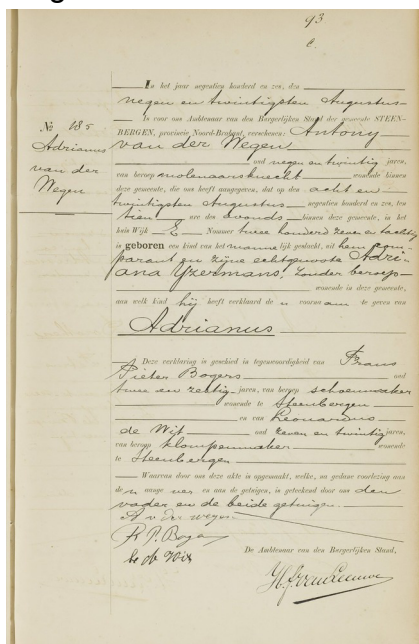 93
No 185
Adrianus
van der
Wegen
In het jaar negentien honderd en zes, den
negen en twintigsten Augustus
is voor ons Ambtenaar van den Burgerlijken Stand der gemeente STEEN-
BERGEN, provincie Noord-Brabant, verschenen: Antony
van der Wegen
oud negen en twintig jaren,
van beroep molenaarsknecht wonende binnen
deze gemeente, die ons heeft aangegeven, dat op den acht en
twintigsten Augustus negentien honderd en zes, ten
tien ure des avonds binnen deze gemeente, in het
huis Wijk E Nommer twee honderd zeven en tachtig
is geboren een kind van het mannelijk geslacht, uit hem com-
parant en zijne echtgenoote Adri-
ana Yzermans, zonder beroep
wonende in deze gemeente,
aan welk kind hij heeft verklaard de n voornaam te geven van
Adrianus
Deze verklaring is geschied in tegenwoordigheid van Frans
Pieter Bogers oud
twee en zestig jaren, van beroep schoenmaker
wonende te Steenbergen
en van Leonardus
de Wit oud zeven en twintig jaren,
van beroep klompenmaker wonende
te Steenbergen
Waarvan door ons deze akte is opgemaakt, welke, na gedane voorlezing aan
de n aangever en aan de getuigen, is geteekend door ons den
vader en de beide getuigen.
A v der wegen
De Ambtenaar van den Burgerlijken Stand,